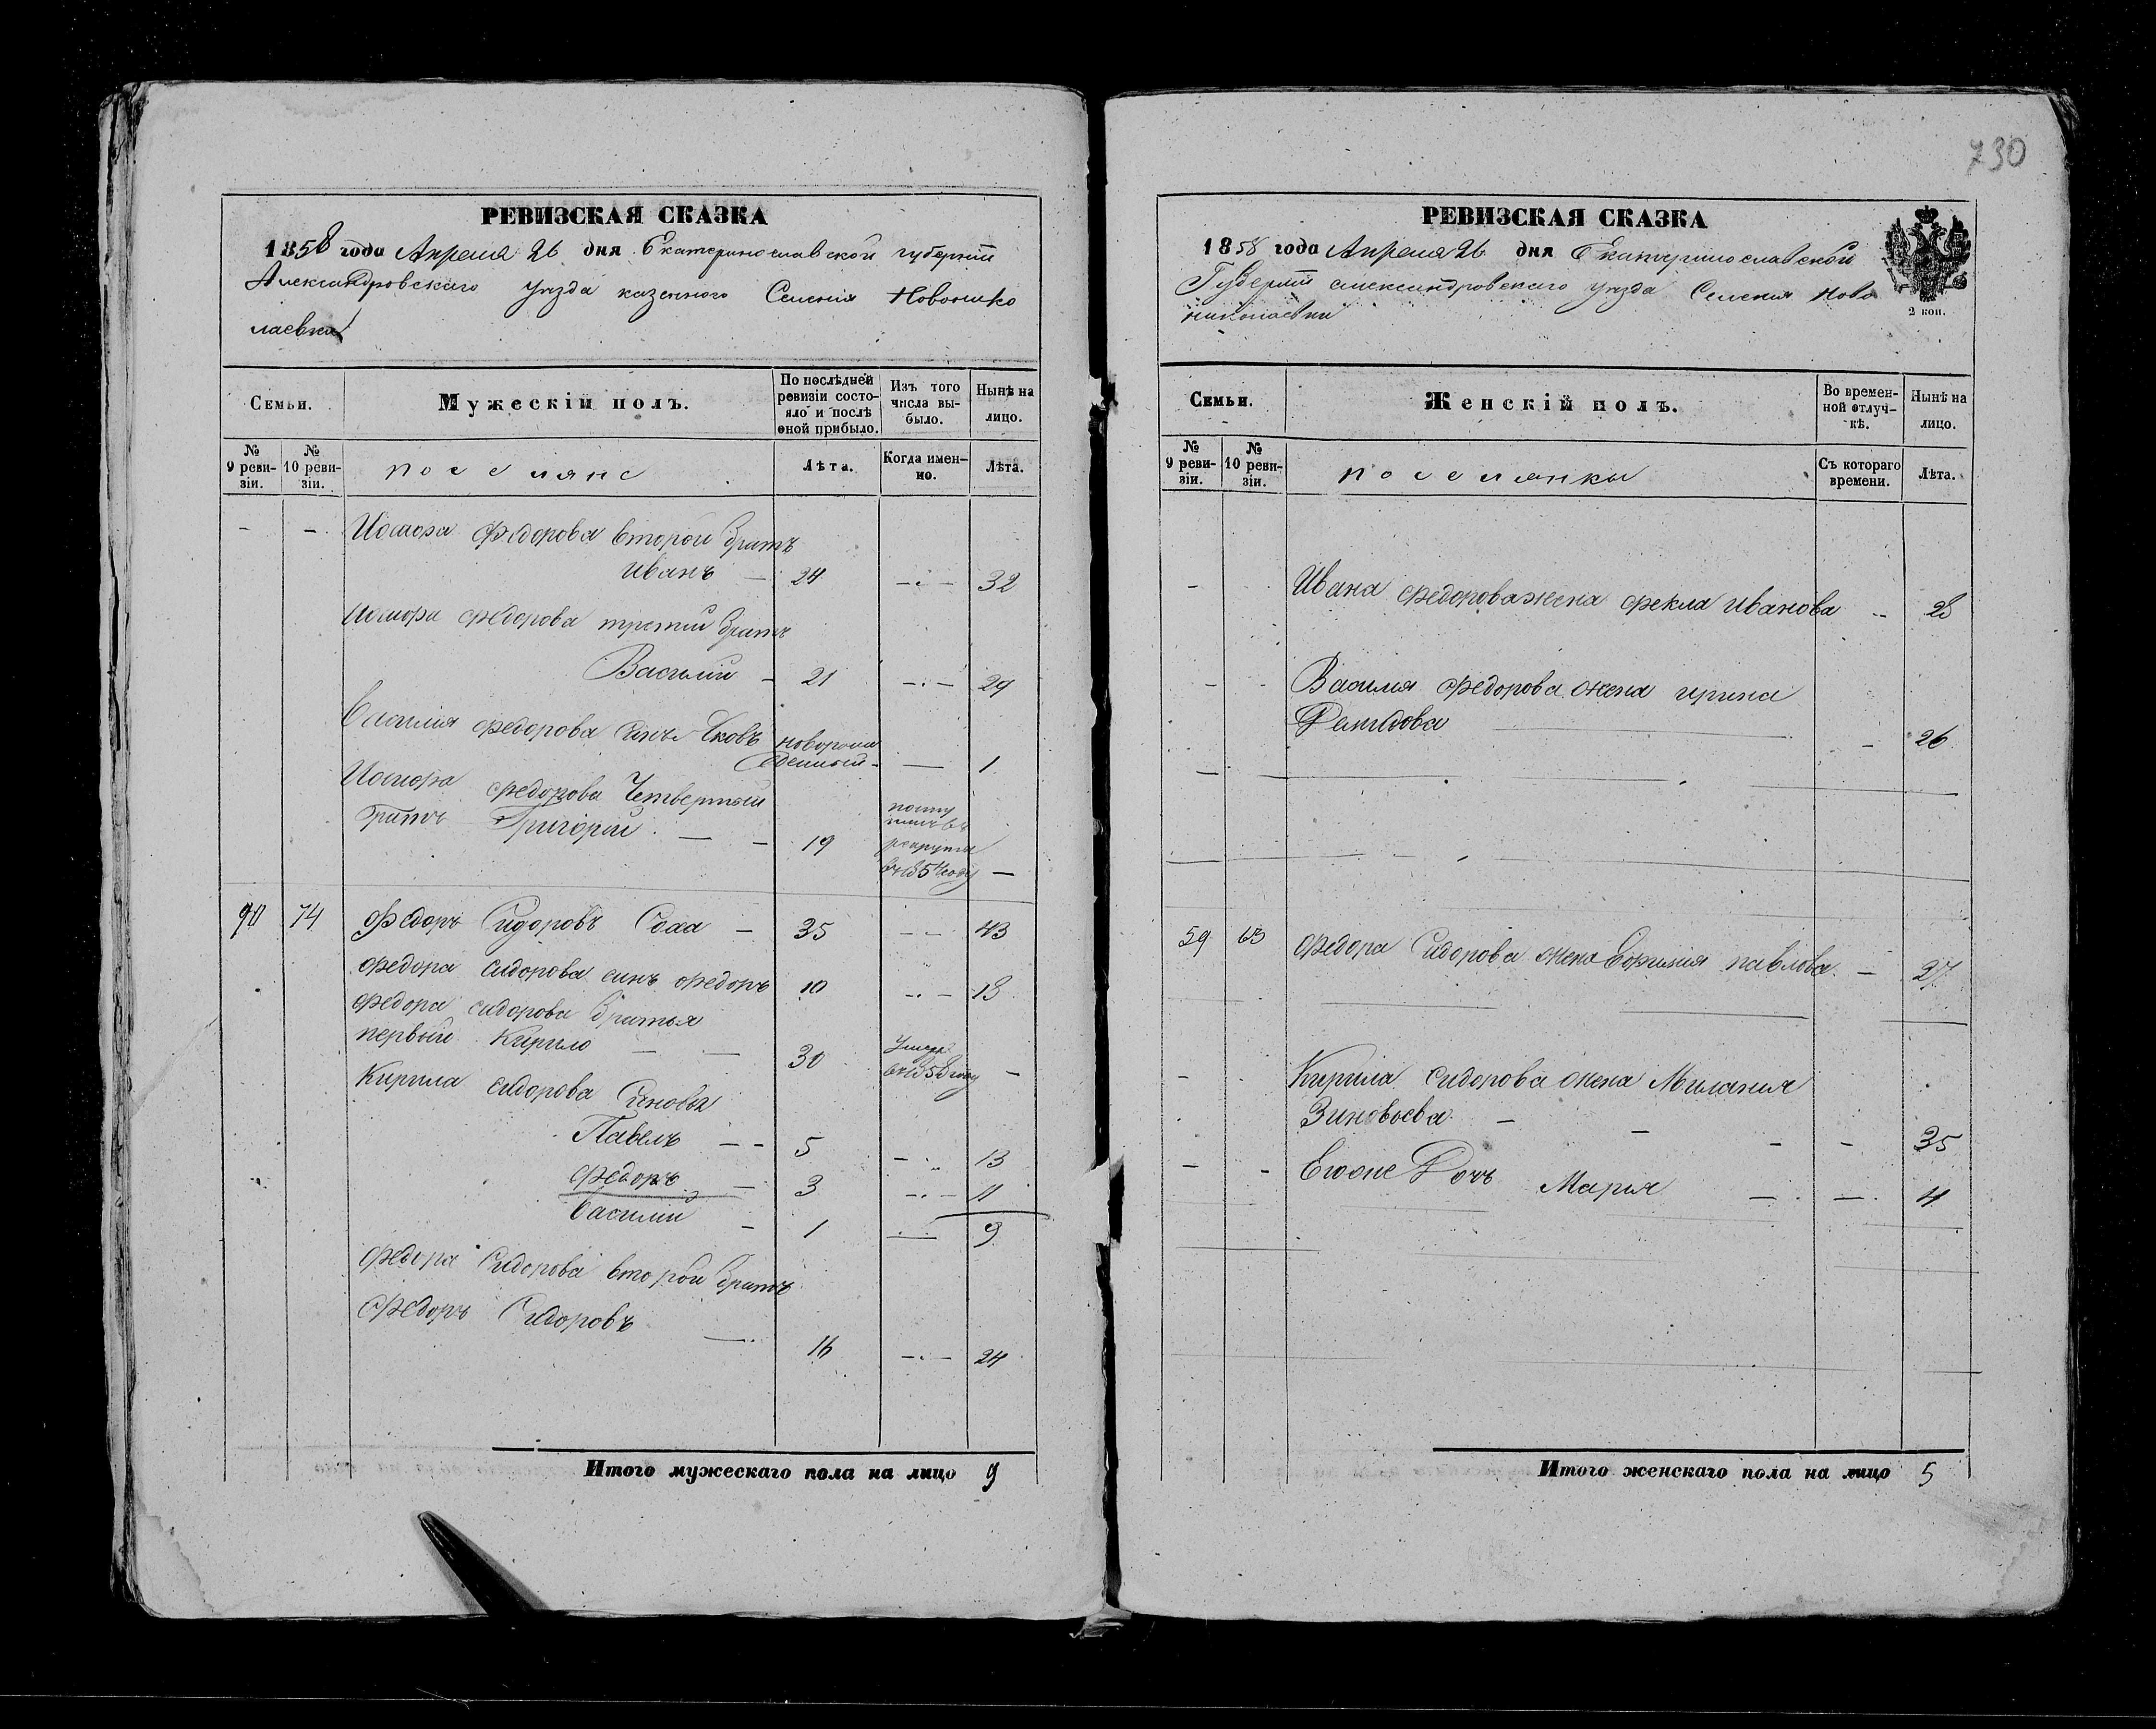 730
РЕВИЗСКАЯ СКАЗКА
1858 года Апреля 26 дня Екатеринославской губернии
Александровскаго уезда казенного Селения Новонико
лаевки
Семьи.
Мужескій полъ.
По послѣдней ревизіи состояло и послѣ оной прибыло.
Изъ того числа выбыло.
Нынѣ на лицо.
№ 9 ревизіи.
№ 10 ревизіи.
поселяне
Лѣта.
Когда именно.
Лѣта.
- - федорова второй братъ
Иванъ — 24 — 32
федорова третий братъ
Василий — 21 — 29
Василия федорова синъ Яковъ новорож
денный — 1
федорова Четвертый
братъ Григорий — 19
рекруты
— 
74 Федоръ Сидоровъ — 35 — 43
федора сидорова синъ федоръ 10 — 18
федора сидорова братья
первый Кирило — 30 —
Кирила сидорова Синовья
Павелъ — 5 — 13
федоръ — 3 — 11
Василий — 1 — 9
федора Сидорова второй братъ
федоръ Сидоровъ —
16 — 24
Итого мужескаго пола на лицо 9
РЕВИЗСКАЯ СКАЗКА
1858 года Апреля 26 дня Екатеринославской
Губернии александровскаго уезда Селения Ново
николаевки
2 коп.
Семьи.
Женскій полъ.
Во временной отлучкѣ.
Нынѣ на лицо.
№ 9 ревизіи.
№ 10 ревизіи.
поселянки
Съ котораго времени.
Лѣта.
Ивана федорова жена фекла иванова — 28
Василия федорова жена ирина
Демидова — 26
59 63 федора Сидорова жена Ефимия павлова — 37
Кирила сидорова жена Милания
Зиновьева — 35
Егоже Дочь Мария — 4
Итого женскаго пола на лицо 5